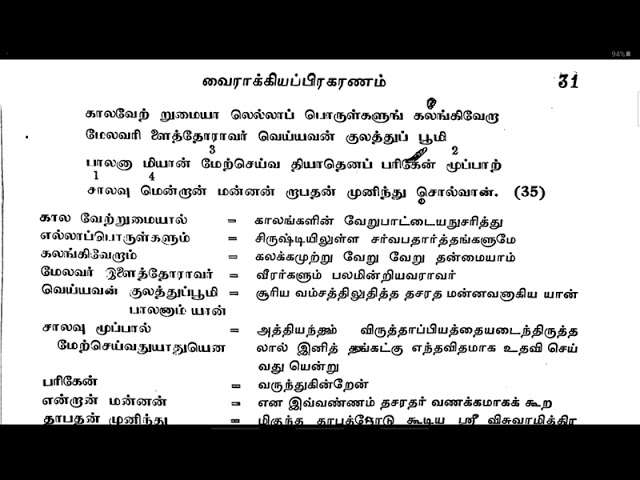 94%
வைராக்கியப்பிரகரணம் 31
காலவேற் றுமையா லெல்லாப் பொருள்களுங் கலங்கிவேறு
மேலவரி ளைத்தோராவர் வெய்யவன் குலத்துப் பூமி
3 2
பாலனா மியான் மேற்செய்வ தியாதெனப் பரிகேன் மூப்பாற்
1 4
சாலவு மென்றான் மன்னன் றாபதன் முனிந்து சொல்வான். (35)
கால வேற்றுமையால் = காலங்களின் வேறுபாட்டையநுசரித்து
எல்லாப்பொருள்களும் = சிருஷ்டியிலுள்ள சர்வபதார்த்தங்களுமே
கலங்கிவேறாம் = கலக்கமுற்று வேறு வேறு தன்மையாம்
மேலவர் இளைத்தோராவர் = வீரர்களும் பலமின்றியவராவர்
வெய்யவன் குலத்துப்பூமி = சூரிய வம்சத்திலுதித்த தசரத மன்னவனாகிய யான்
பாலனாம் யான்
சாலவு மூப்பால் = அத்தியந்தம் விருத்தாப்பியத்தையடைந்திருத்த
மேற்செய்வதுயாதுயென லால் இனித் தங்கட்கு எந்தவிதமாக உதவி செய்
வது யென்று
பரிகேன் = வருந்துகின்றேன்
என்றான் மன்னன் = என இவ்வண்ணம் தசரதர் வணக்கமாகக் கூற
தாபதன் முனிந்து = மிகுந்த தாபத்தோடு கூடிய ஸ்ரீ விசுவாமித்திர